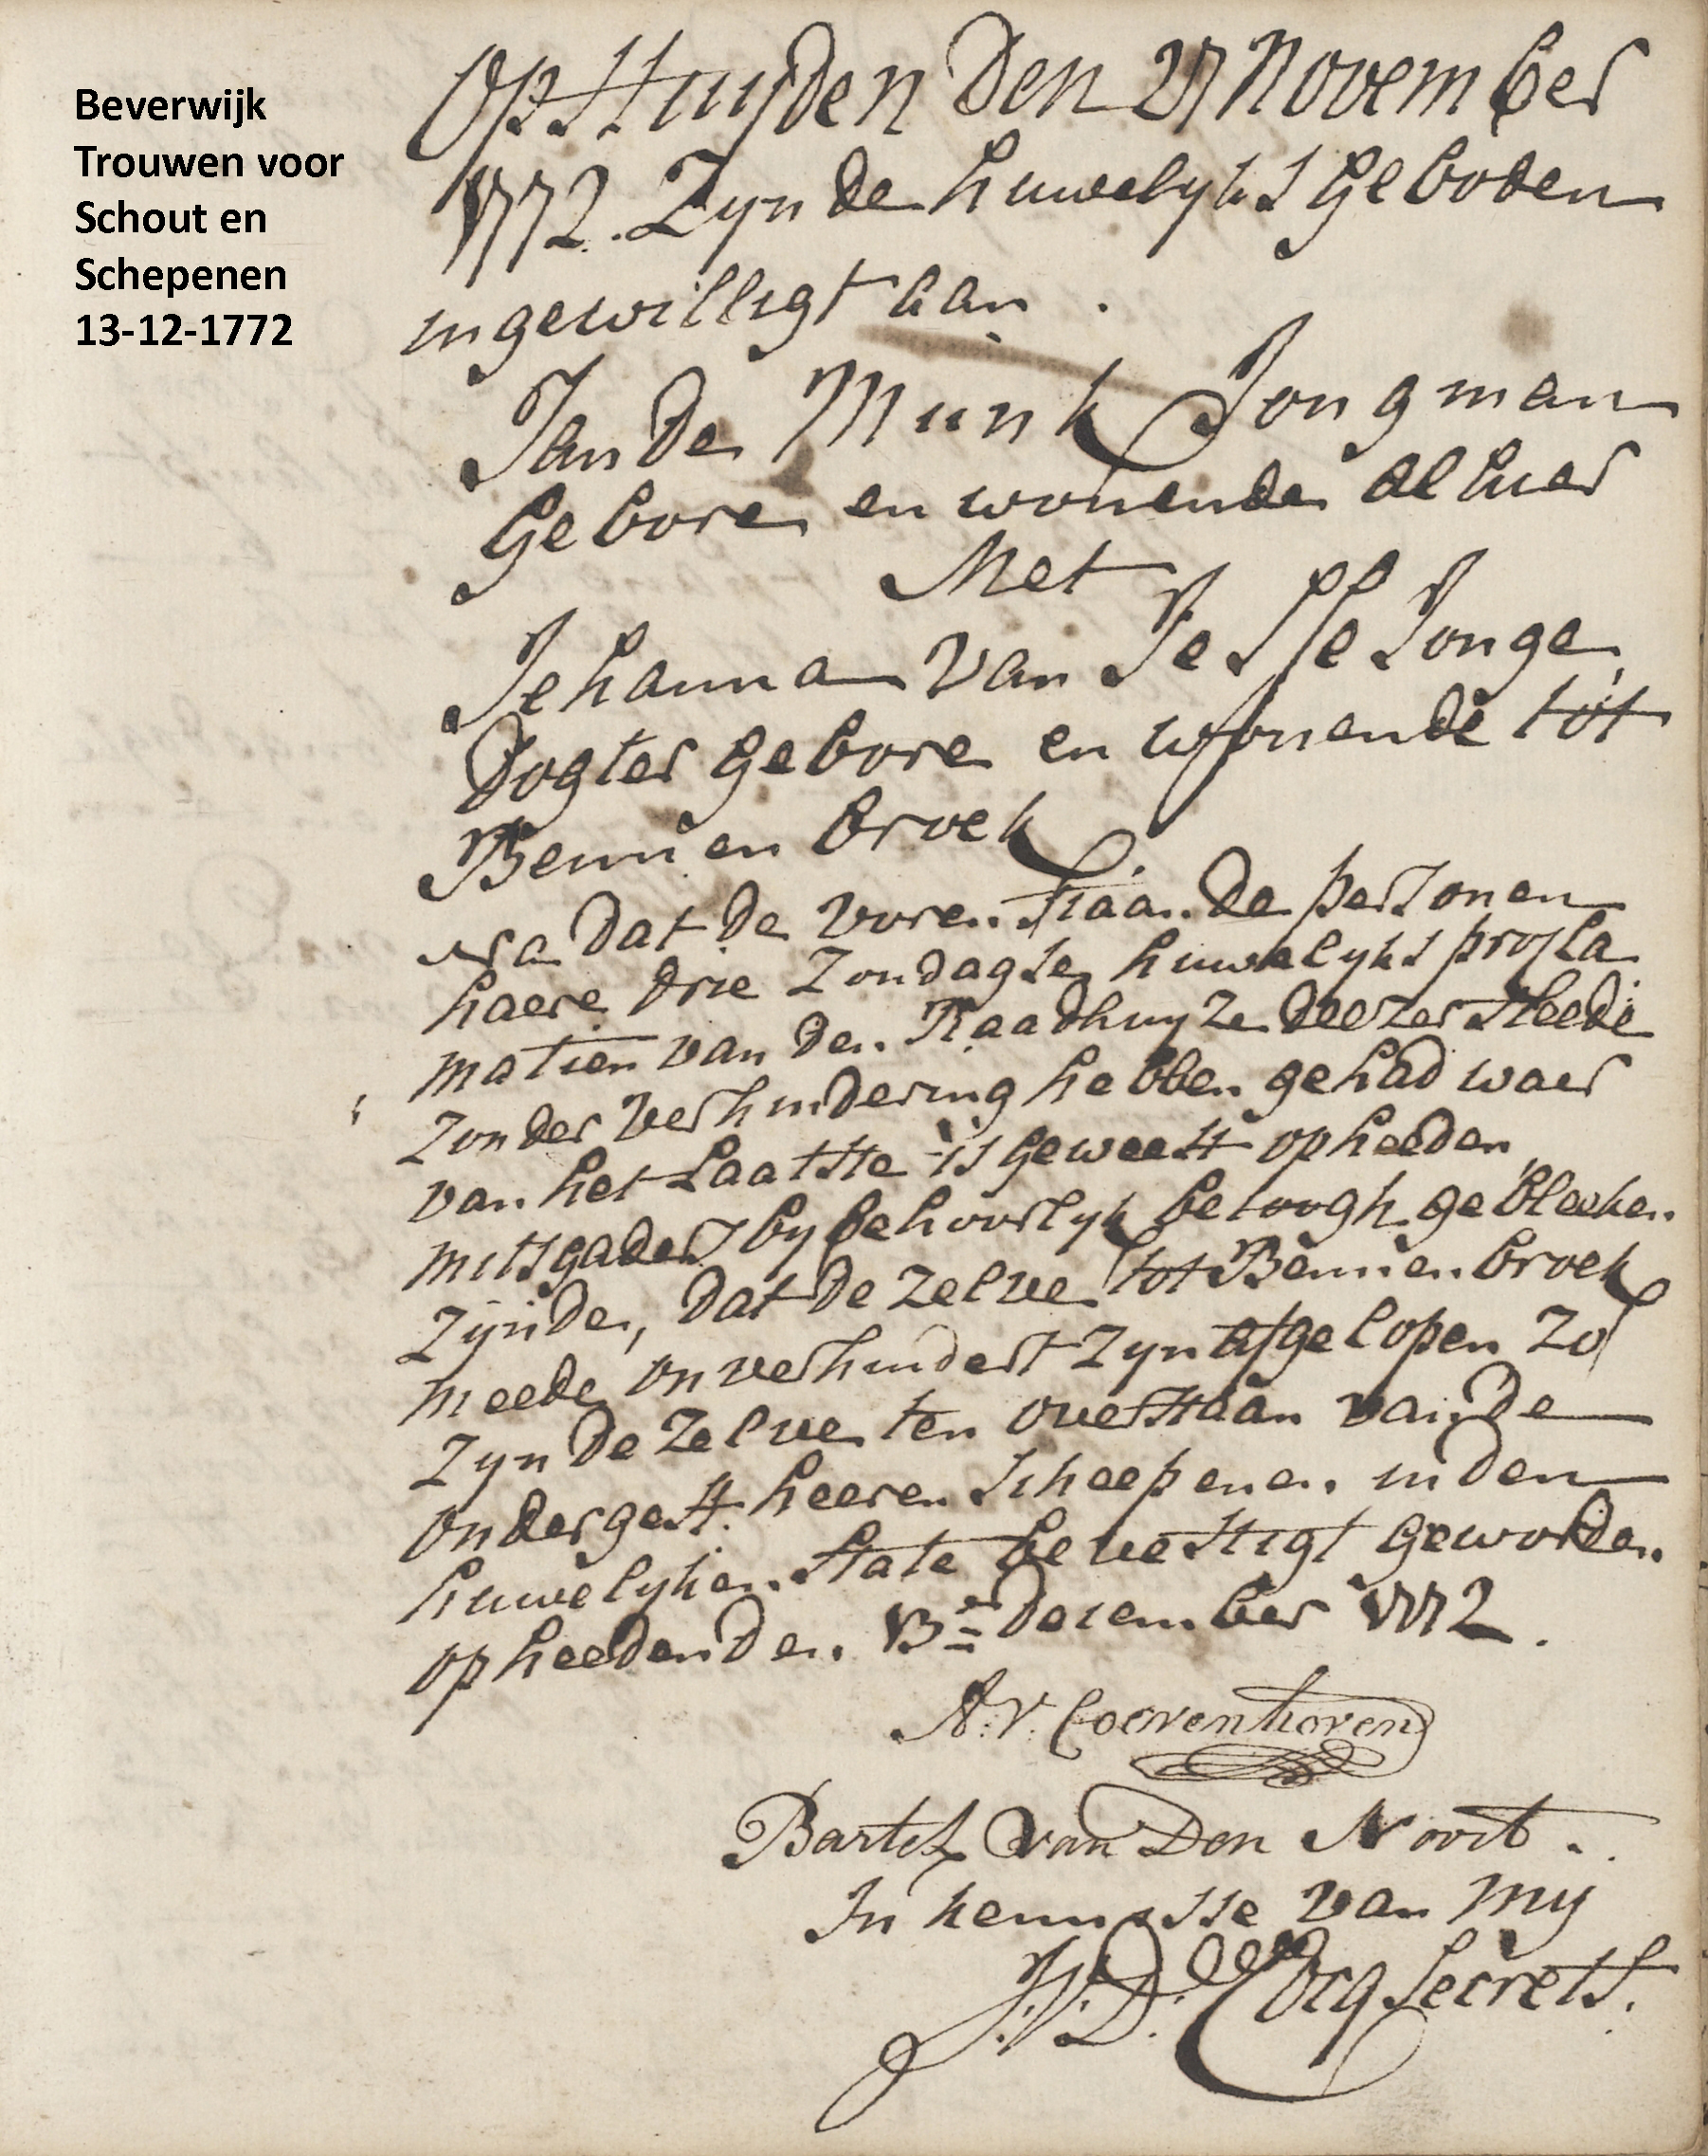 Beverwijk
Trouwen voor
Schout en
Schepenen
13-12-1772
Op Huyden Den 27 November
1772. Zyn de huwelyks Geboden
ingewilligt aan
Jan De Munk Jongman
Gebore en wonende alhier
Met
Jehanna van Jesse Jonge
Dogter Gebore en wonende tot
Bennenbroek
Na Dat De voren staande personen
haere drie Zondagse huwelyks procla
matien van den Raadhuyze deezer Steede
Zonder verhindering hebben gehad waer
van het Laatste is geweest op heeden
mitsgaders by behoorlyk betoogh gebleeken
Zijnde, dat de Zelve tot Bennenbroek
meede onverhindert Zyn afgelopen Zo
Zyn de Zelve ten overstaan van de
ondergest. heeren Scheepenen in den
huwelyken State bevestigt geworden
op heeden den 13en December 1772.
A. V. Coevenhoven
Bartel van Den Noort.
In kennisse van my
J. V. D. Cocq Secrets.